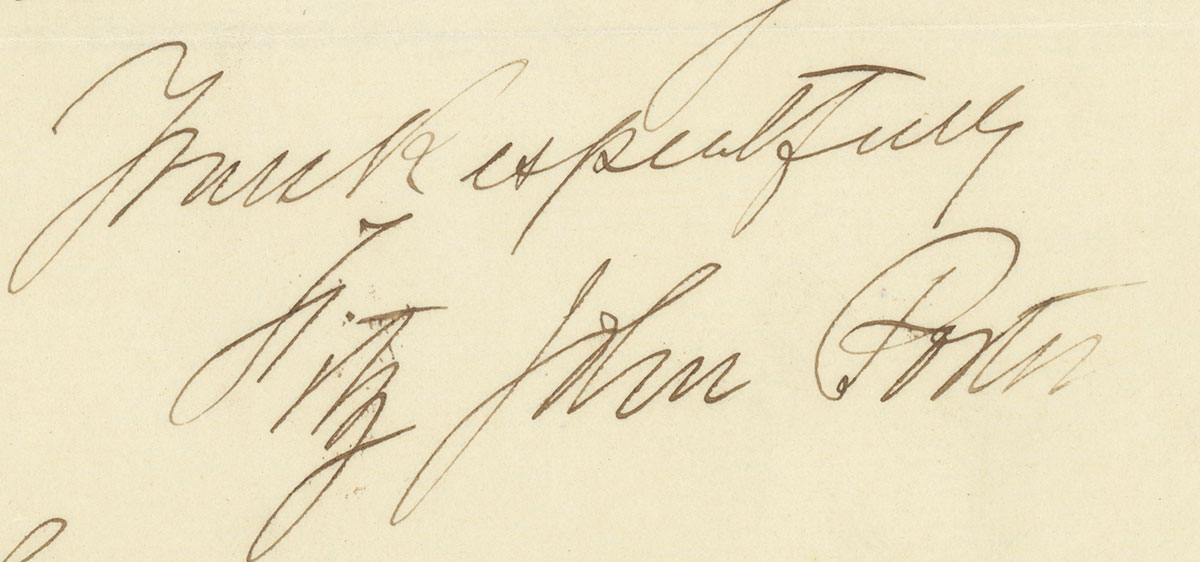 Yours Respectfully
Fitz John Porter